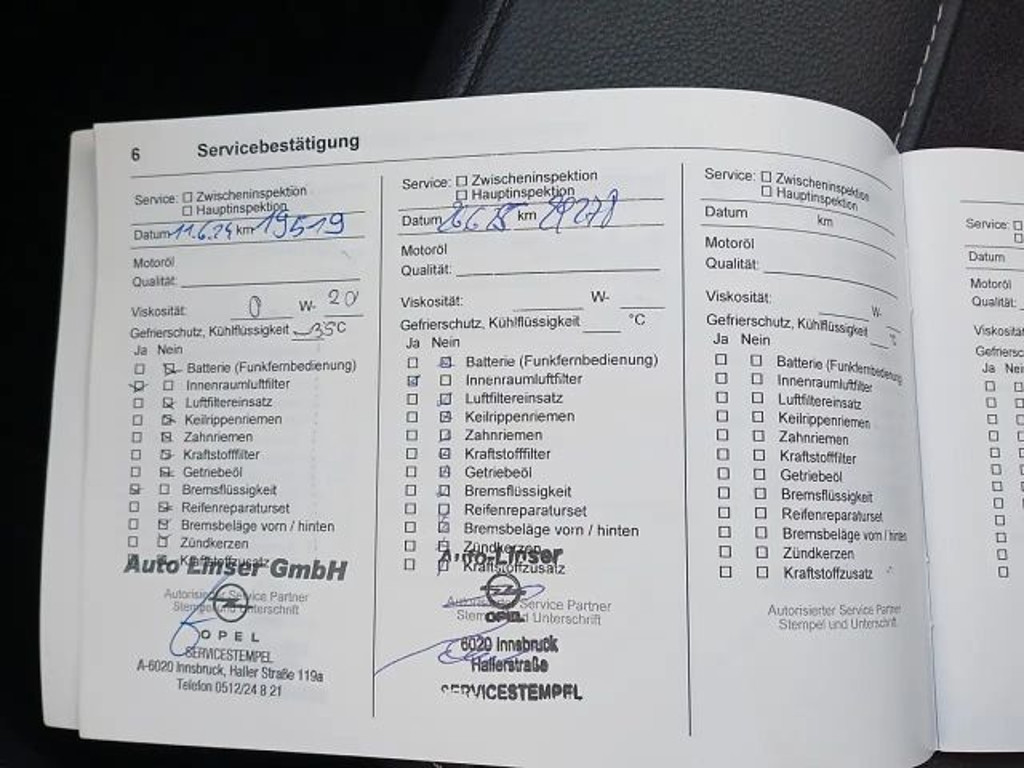 6 Servicebestätigung
Service: Zwischeninspektion
Hauptinspektion
Datum 11.6.24 km 19519
Motoröl
Qualität:
Viskosität: 0 W- 20
Gefrierschutz, Kühlflüssigkeit -35°C
Ja Nein
Batterie (Funkfernbedienung)
Innenraumluftfilter
Luftfiltereinsatz
Keilrippenriemen
Zahnriemen
Kraftstofffilter
Getriebeöl
Bremsflüssigkeit
Reifenreparaturset
Bremsbeläge vorn / hinten
Zündkerzen
Kraftstoffzusatz
Auto Linser GmbH
Autorisierter Service Partner
Stempel und Unterschrift
OPEL
SERVICESTEMPEL
A-6020 Innsbruck, Haller Straße 119a
Telefon 0512/24 8 21
Service: Zwischeninspektion
Hauptinspektion
Datum km
Motoröl
Qualität:
Viskosität: W-
Gefrierschutz, Kühlflüssigkeit °C
Ja Nein
Batterie (Funkfernbedienung)
Innenraumluftfilter
Luftfiltereinsatz
Keilrippenriemen
Zahnriemen
Kraftstofffilter
Getriebeöl
Bremsflüssigkeit
Reifenreparaturset
Bremsbeläge vorn / hinten
Zündkerzen
Auto-Linser
Kraftstoffzusatz
Autorisierter Service Partner
Stempel und Unterschrift
OPEL
6020 Innsbruck
Hallerstraße
SERVICESTEMPEL
Service: Zwischeninspektion
Hauptinspektion
Datum km
Motoröl
Qualität:
Viskosität: W-
Gefrierschutz, Kühlflüssigkeit °C
Ja Nein
Batterie (Funkfernbedienung
Innenraumluftfilter
Luftfiltereinsatz
Keilrippenriemen
Zahnriemen
Kraftstofffilter
Getriebeöl
Bremsflüssigkeit
Reifenreparaturset
Bremsbeläge vorn / hinten
Zündkerzen
Kraftstoffzusatz
Autorisierter Service Partner
Stempel und Unterschrift
Service:
Datum
Motoröl
Qualität:
Viskosität
Gefriersc
Ja Nei